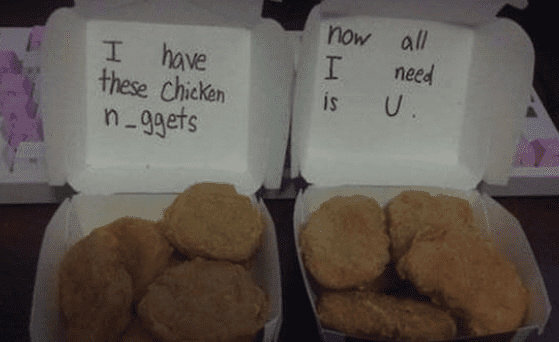 I have
these Chicken
n_ggets
now all
I need
is U.